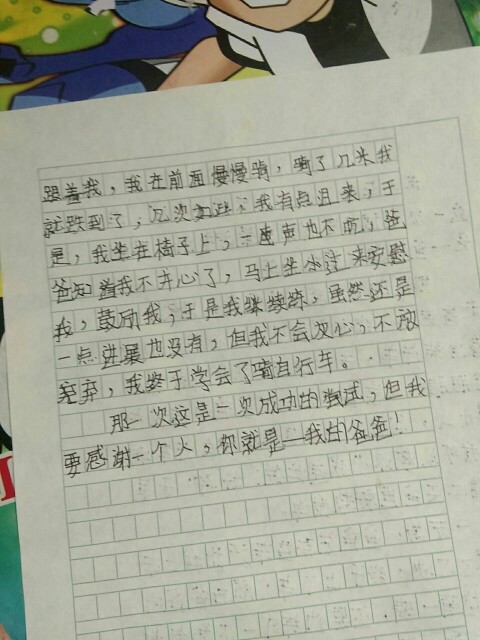 跟着我，我在前面慢慢骑，骑了几米我
就跌到了，几次如此，我有点沮丧，于
是，我坐在椅子上，一声也不吭，爸
爸知道我不开心了，马上坐来安慰
我，鼓励我，于是我继续练，虽然还是
一点进展也没有，但我不会灰心，不放
弃，我终于学会了骑自行车。
那一次这是一次成功的尝试，但我
要感谢一个人，你就是—我的爸爸！